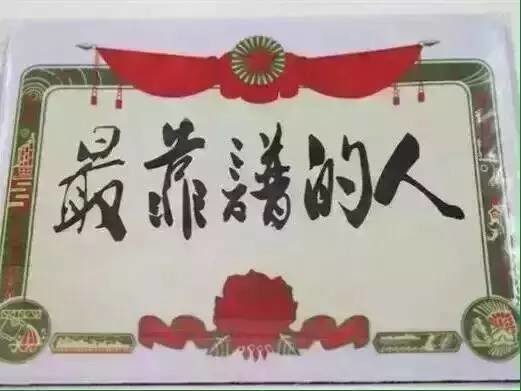 最靠譜的人